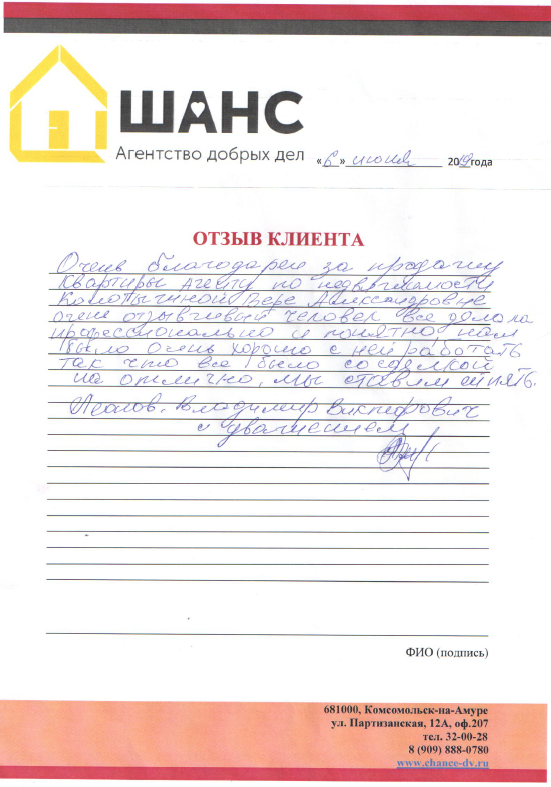 ШАНС
Агентство добрых дел
«6» июня 2019года
ОТЗЫВ КЛИЕНТА
Очень благодарен за продажу
квартиры агенту по недвижимости
Вере Александровне
очень отзывчивый человек все делала
профессионально и понятно нам
было очень хорошо с ней работать
так что все было со сделкой
на отлично, мы ставим ей пять.
Владимир
с уважением
ФИО (подпись)
681000, Комсомольск-на-Амуре
ул. Партизанская, 12А, оф.207
тел. 32-00-28
8 (909) 888-0780
www.chance-dv.ru